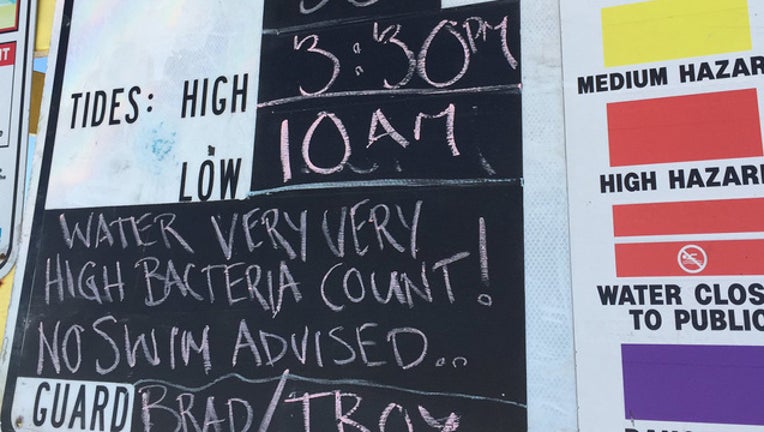 3:30PM
TIDES: HIGH
10AM
LOW
WATER VERY VERY
HIGH BACTERIA COUNT!
NO SWIM ADVISED..
GUARD BRAD/TROY
MEDIUM HAZAR
HIGH HAZARD
WATER CLOS
TO PUBLIC